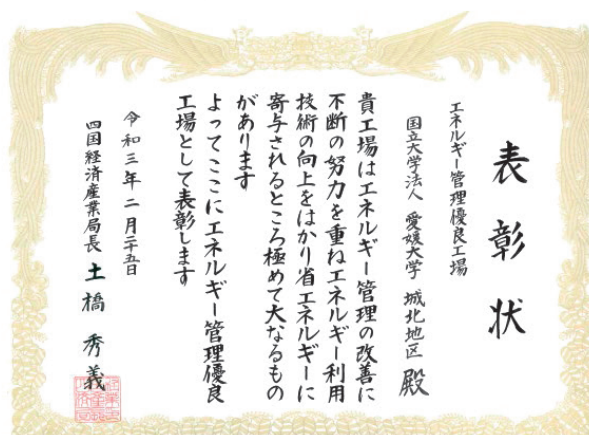 表彰状
エネルギー管理優良工場
国立大学法人 愛媛大学 城北地区 殿
貴工場はエネルギー管理の改善に
不断の努力を重ねエネルギー利用
技術の向上をはかり省エネルギーに
寄与されるところ極めて大なるもの
があります
よってここにエネルギー管理優良
工場として表彰します
令和三年二月二十五日
四国経済産業局長 土橋 秀義